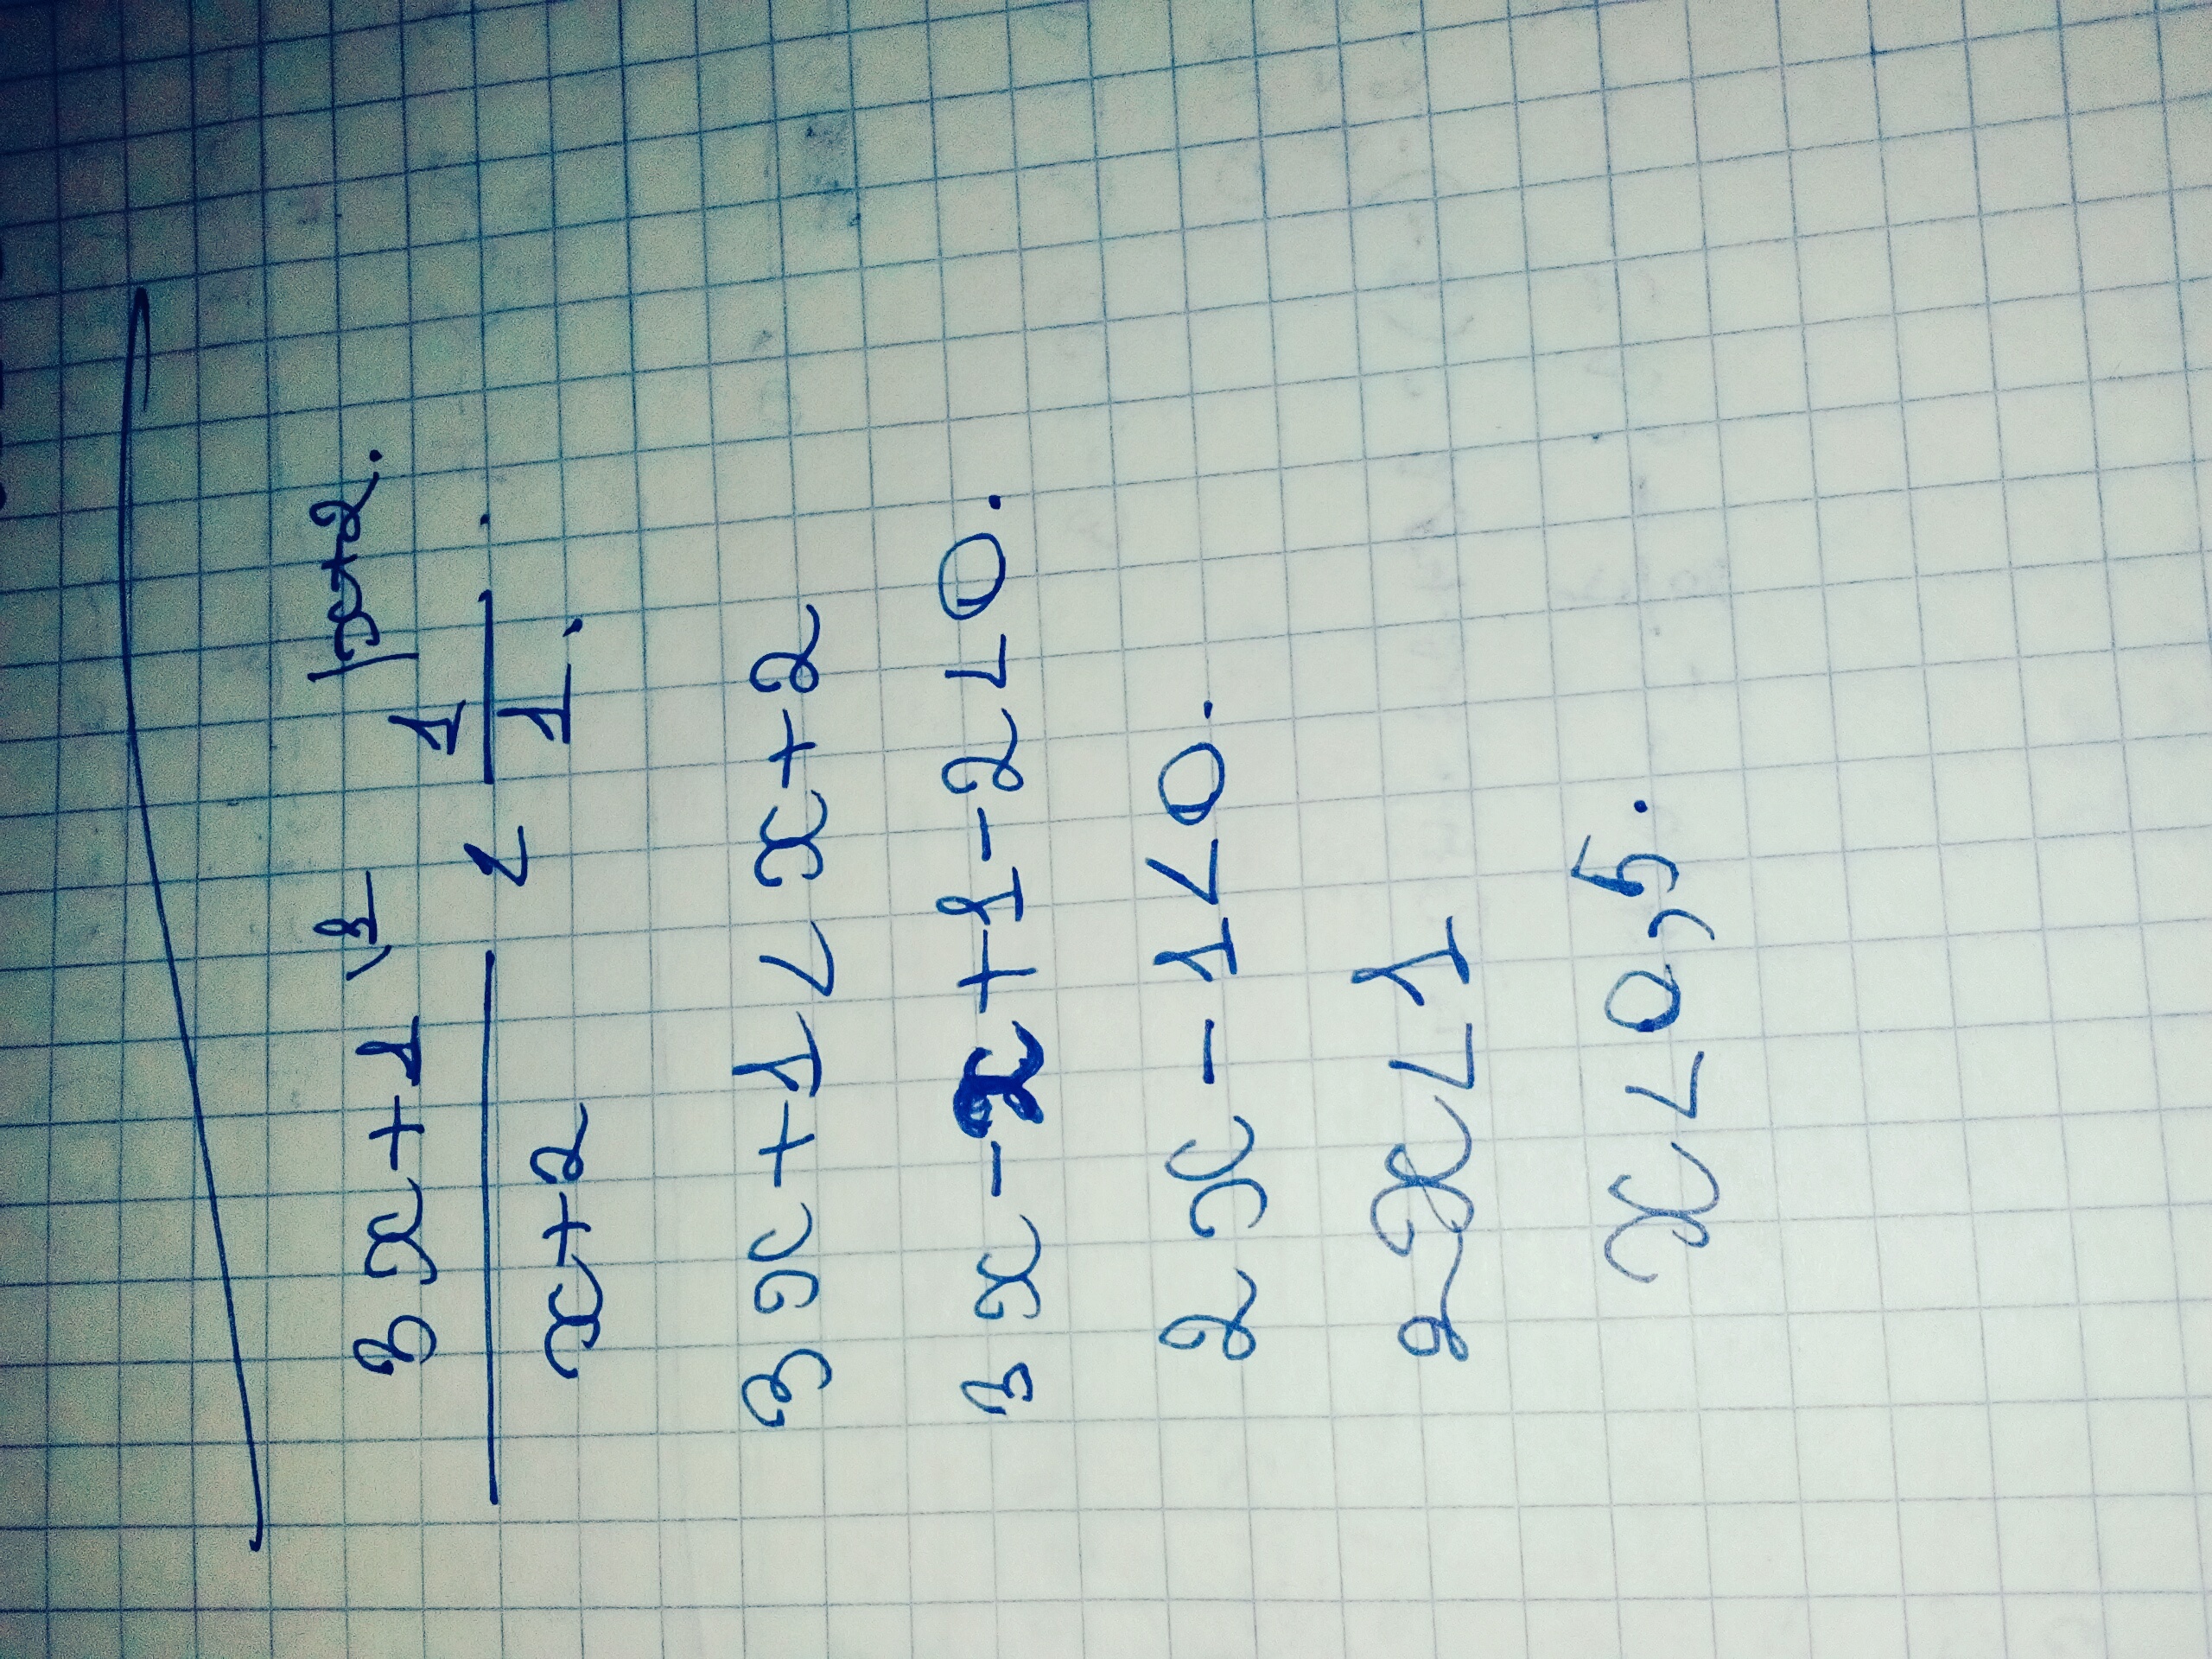 3x+1 \1 < 1 |x+2.
x+2 1.
3x+1<x+2
3x-x+1-2<0.
2x-1<0.
2x<1
x<0,5.